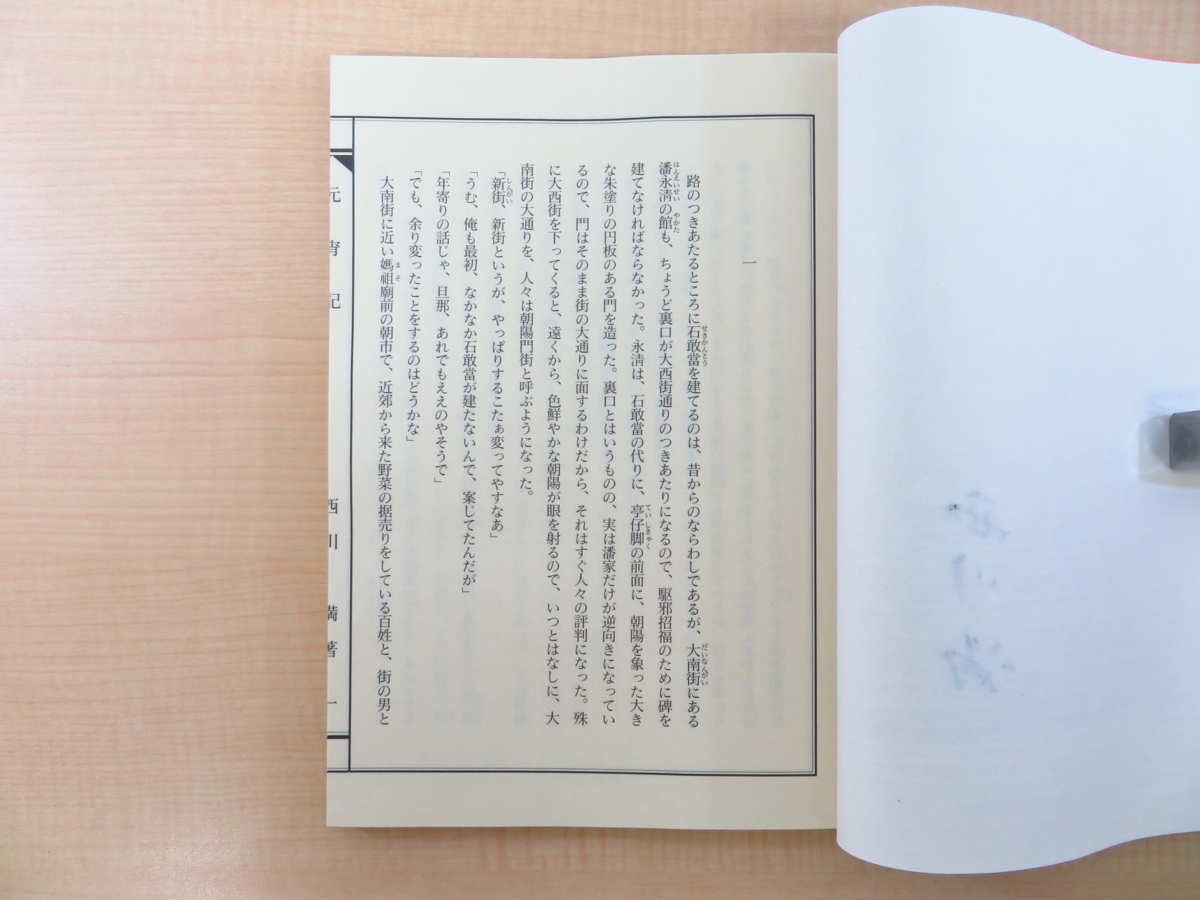 一
路のつきあたるところに石敢當を建てるのは、昔からのならわしであるが、大南街にある
潘永淸の館も、ちょうど裏口が大西街通りのつきあたりになるので、駆邪招福のために碑を
建てなければならなかった。永淸は、石敢當の代りに、亭仔脚の前面に、朝陽を象った大き
な朱塗りの円板のある門を造った。裏口とはいうものの、実は潘家だけが逆向きになってい
るので、門はそのまま街の大通りに面するわけだから、それはすぐ人々の評判になった。殊
に大西街を下ってくると、遠くから、色鮮やかな朝陽が眼を射るので、いつとはなしに、大
南街の大通りを、人々は朝陽門街と呼ぶようになった。
「新街、新街というが、やっぱりするこたぁ変ってやすなあ」
「うむ、俺も最初、なかなか石敢當が建たないんで、案じてたんだが」
「年寄りの話じゃ、旦那、あれでもええのやそうで」
「でも、余り変ったことをするのはどうかな」
大南街に近い媽祖廟前の朝市で、近郊から来た野菜の据売りをしている百姓と、街の男と
元宵記 西川満著 一
西川満